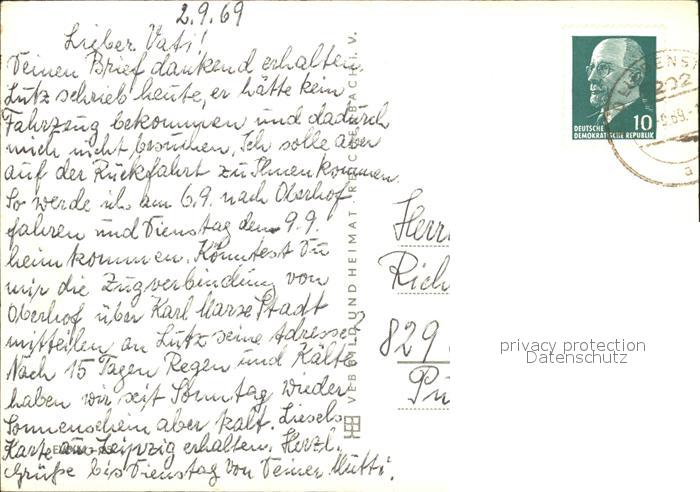 2.9.69
Lieber Vati!
Deinen Brief dankend erhalten.
Lutz schrieb heute, er hätte kein
Fahrzeug bekommen und dadurch
mich nicht besuchen. Ich solle aber
auf der Rückfahrt zu Ihnen kommen.
So werde ich am 6.9. nach Oberhof
fahren und Dienstag den 9.9.
heim kommen. Könntest Du
mir die Zugverbindung von
Oberhof über Karl Marx Stadt
mitteilen an Lutz seine Adresse?
Nach 15 Tagen Regen und Kälte
haben wir seit Sonntag wieder
Sonnenschein aber kalt. Liesels
Karte aus Leipzig erhalten. Herzl.
Grüße bis Dienstag von Deiner Mutti.
VEB BILD UND HEIMAT REICHENBACH I. V.
DEUTSCHE
DEMOKRATISCHE REPUBLIK
10
Herr
Rich
829
privacy protection
Datenschutz